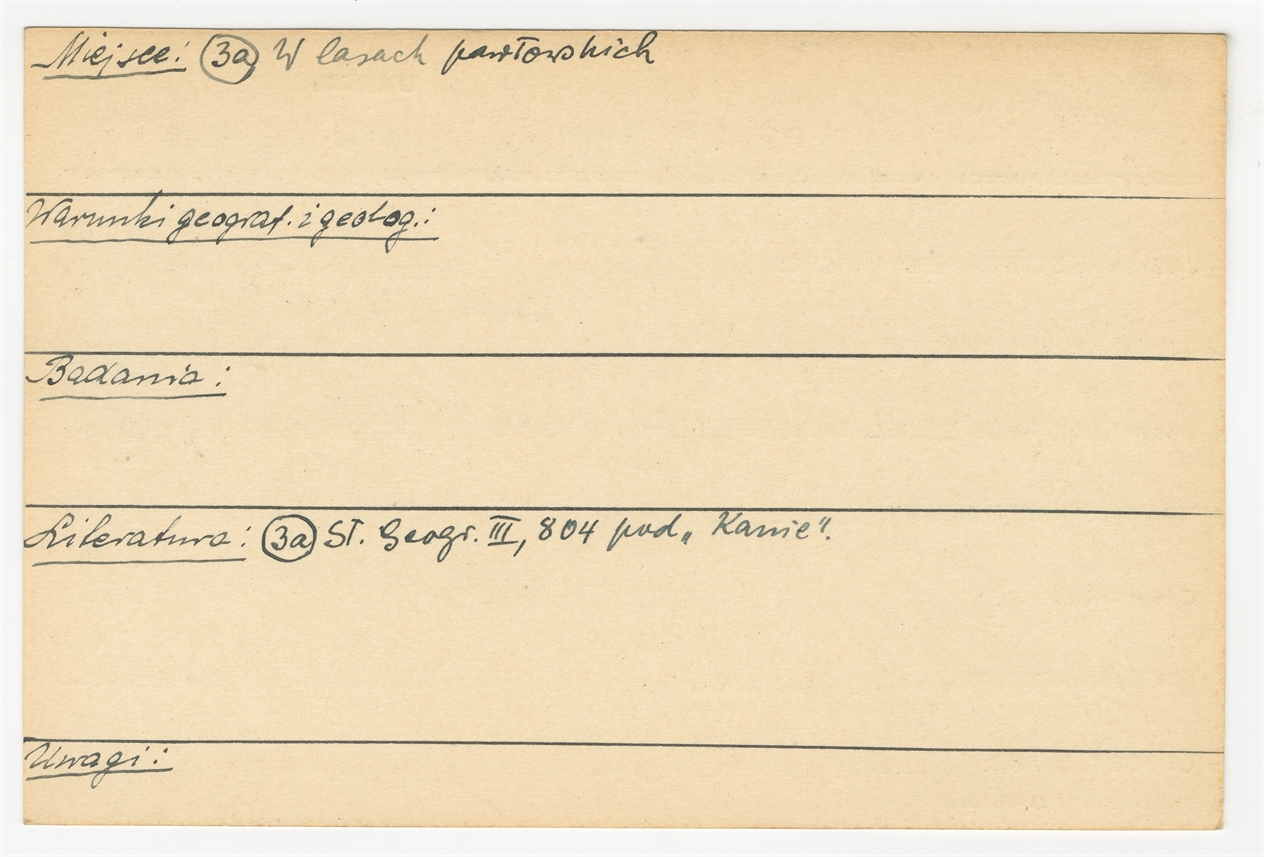 Miejsce: 3a W lasach pawłowskich
Warunki geograf. i geolog.:
Badania:
Literatura: 3a Sł. Geogr. III, 804 pod „Kanie".
Uwagi: